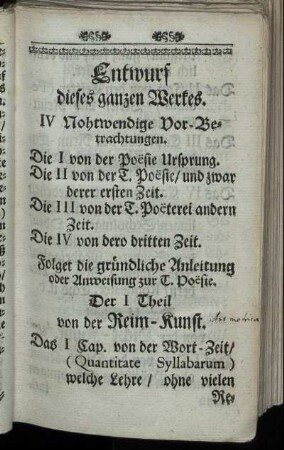 Entwurf
dieses ganzen Werkes.
IV Nohtwendige Vor-Be-
trachtungen.
Die I von der Poësie Ursprung.
Die II von der T. Poësie/ und zwar
derer ersten Zeit.
Die III von der T. Poëterei andern
Zeit.
Die IV von dero dritten Zeit.
Folget die gründliche Anleitung
oder Anweisung zur T. Poësie.
Der I Theil
von der Reim-Kunst.
Das I Cap. von der Wort-Zeit/
(Quantitate Syllabarum)
welche Lehre/ ohne vielen
Re-